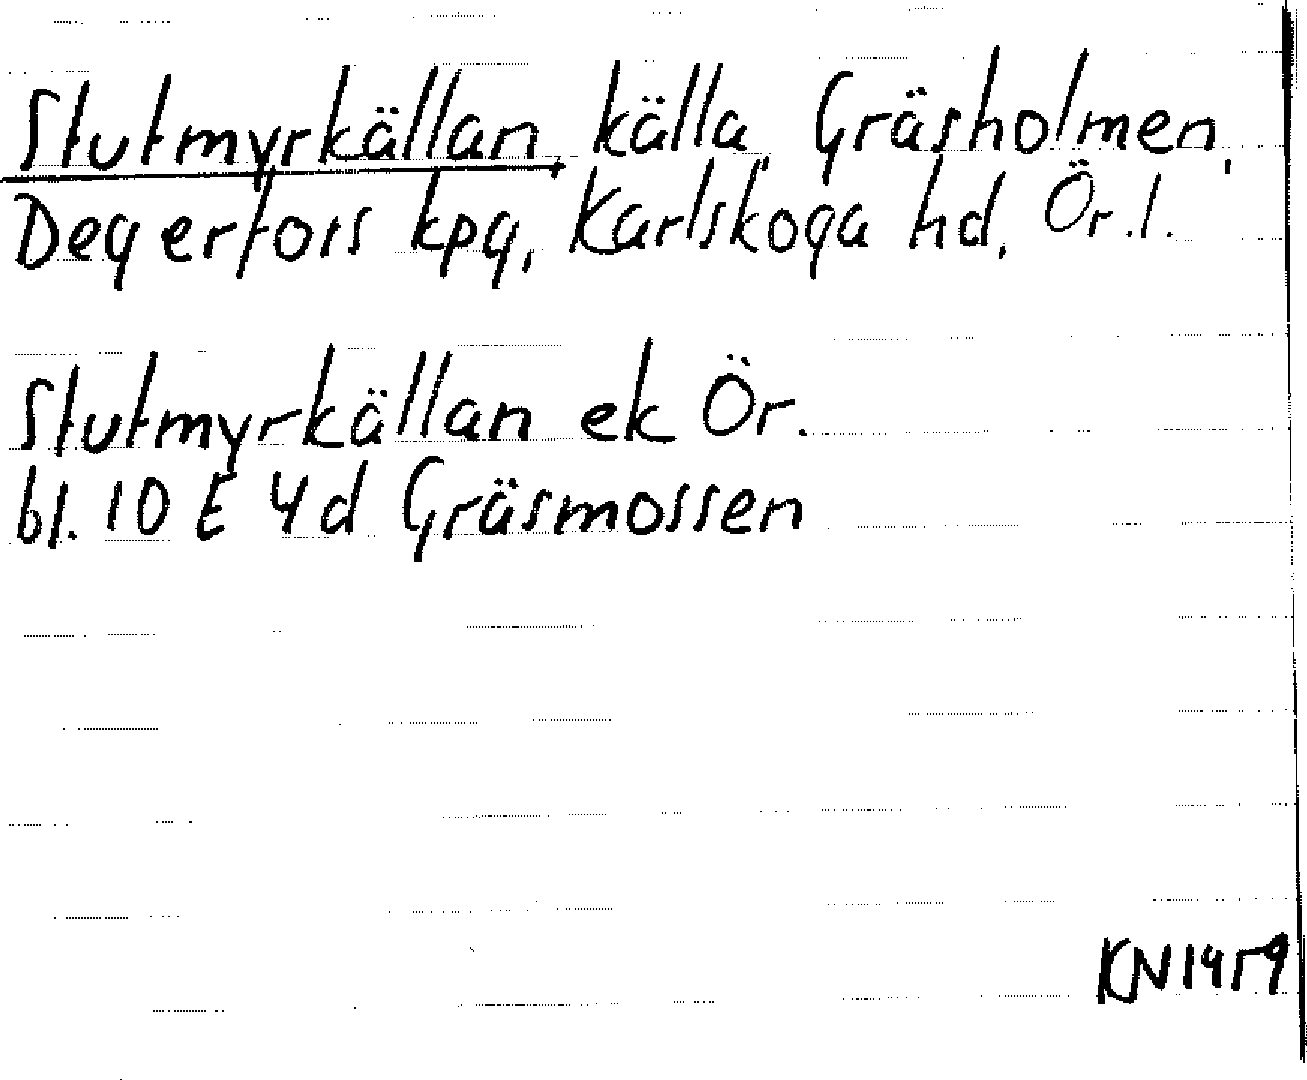 Stutmyrkällan, källa, Gräsholmen,
Degerfors kpg, Karlskoga hd, Ör.l.
Stutmyrkällan ek Ör.
bl. 10 E 4d Gräsmossen
KN1959